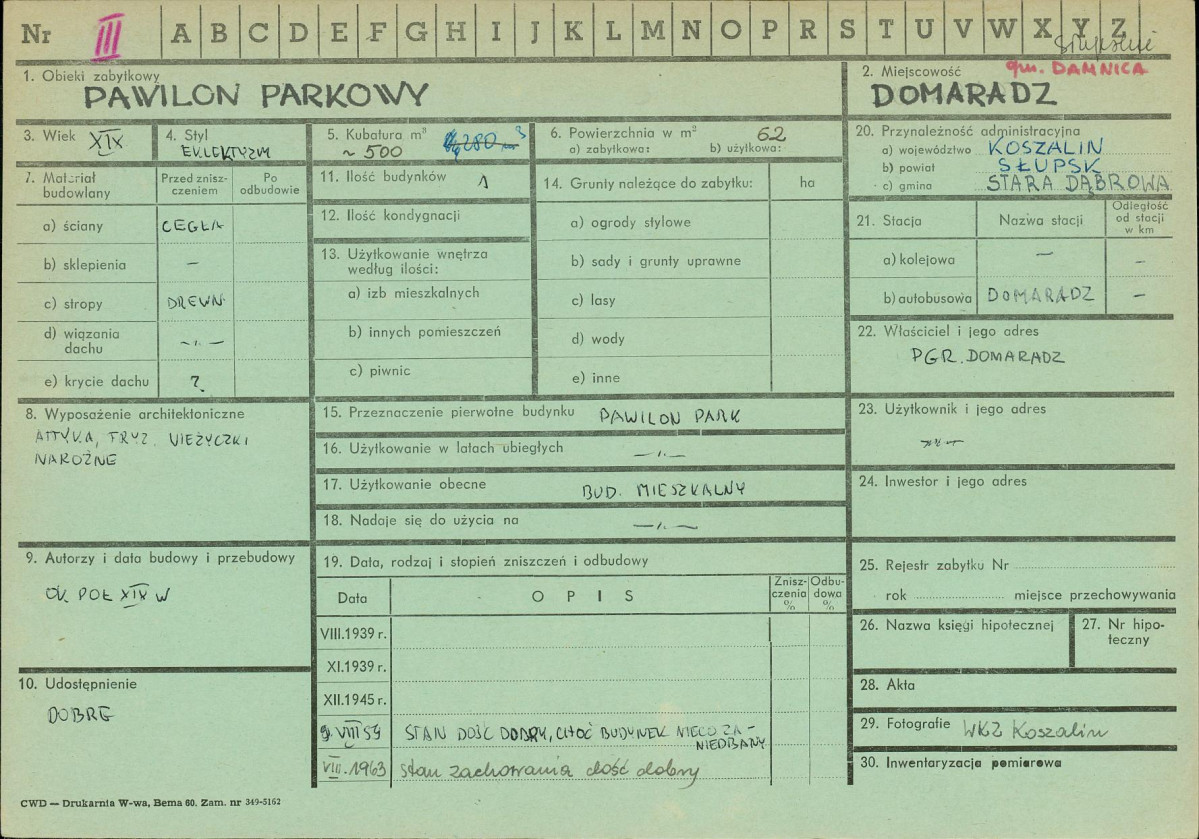 Nr III A B C D E F G H I J K L M N O P R S T U V W X Y Z
Słupskie
1. Obiekt zabytkowy
PAWILON PARKOWY
2. Miejscowość gm. DAMNICA
DOMARADZ
3. Wiek XIX
4. Styl
EKLEKTYZM
5. Kubatura m³
~ 500
6. Powierzchnia w m² 62
a) zabytkowa: b) użytkowa:
20. Przynależność administracyjna
a) województwo KOSZALIN
b) powiat SŁUPSK
c) gmina STARA DĄBROWA
7. Materiał budowlany
Przed zniszczeniem
Po odbudowie
a) ściany CEGŁA
b) sklepienia —
c) stropy DREWN.
d) wiązania dachu —„—
e) krycie dachu ?
11. Ilość budynków 1
12. Ilość kondygnacji
13. Użytkowanie wnętrza według ilości:
a) izb mieszkalnych
b) innych pomieszczeń
c) piwnic
14. Grunty należące do zabytku: ha
a) ogrody stylowe
b) sady i grunty uprawne
c) lasy
d) wody
e) inne
21. Stacja
Nazwa stacji
Odległość od stacji w km
a) kolejowa — —
b) autobusowa DOMARADZ —
22. Właściciel i jego adres
PGR. DOMARADZ
8. Wyposażenie architektoniczne
ATTYKA, FRYZ. WIEŻYCZKI
NAROŻNE
15. Przeznaczenie pierwotne budynku PAWILON PARK
16. Użytkowanie w latach ubiegłych —„—
17. Użytkowanie obecne BUD. MIESZKALNY
18. Nadaje się do użycia na —„—
23. Użytkownik i jego adres
—„—
24. Inwestor i jego adres
9. Autorzy i data budowy i przebudowy
OK POŁ XIX W
10. Udostępnienie
DOBRE
19. Data, rodzaj i stopień zniszczeń i odbudowy
Data
OPIS
Zniszczenia %
Odbudowa %
VIII.1939 r.
XI.1939 r.
XII.1945 r.
9. VIII 59 STAN DOŚĆ DOBRY, CHOĆ BUDYNEK NIECO ZA-
NIEDBANY
VIII.1963 stan zachowania dość dobry
25. Rejestr zabytku Nr
rok miejsce przechowywania
26. Nazwa księgi hipotecznej
27. Nr hipoteczny
28. Akta
29. Fotografie WKZ Koszalin
30. Inwentaryzacja pomiarowa
CWD — Drukarnia W-wa, Bema 60. Zam. nr 349-5162